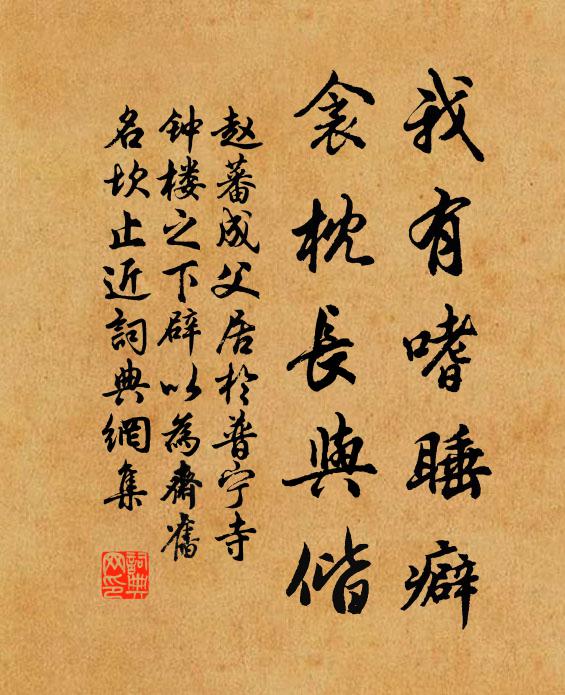 我有嗜睡癖
衾枕長與偕
赵蕃成父居於普宁寺
钟楼之下辟以為齋舊
名坎止近詞典網集
詞典
网印